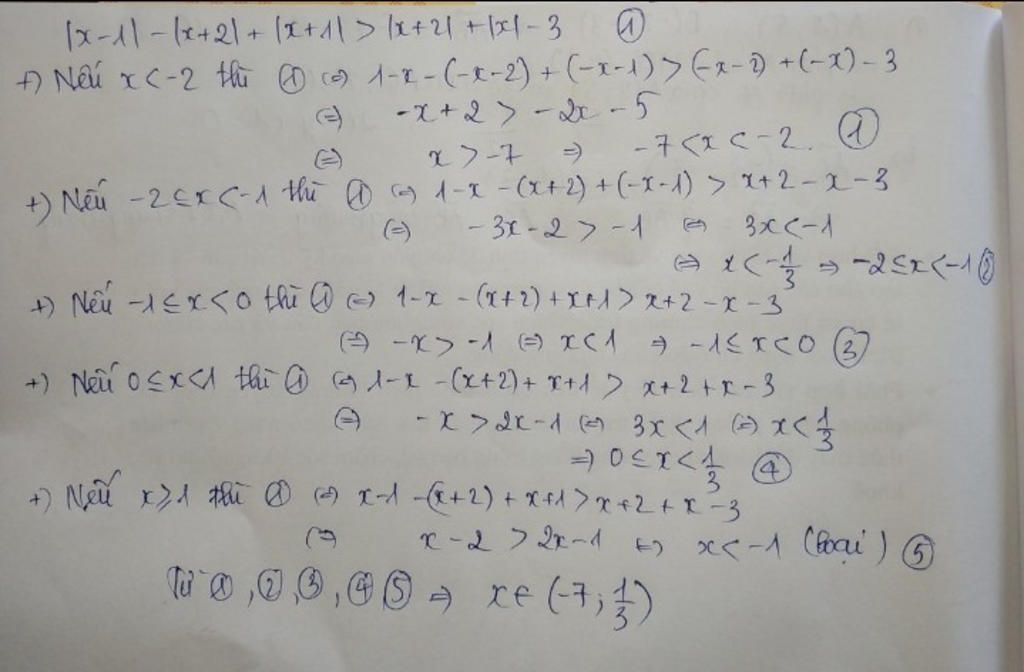 |x-1| - |x+2| + |x+1| > |x+2| + |x| - 3 ①
+) Nếu x < -2 thì ① ⇔ 1-x - (-x-2) + (-x-1) > (-x-2) + (-x) - 3
⇔ -x + 2 > -2x - 5
⇔ x > -7 ⇒ -7 < x < -2. ①
+) Nếu -2 ≤ x < -1 thì ① ⇔ 1-x - (x+2) + (-x-1) > x+2 - x - 3
⇔ -3x - 2 > -1 ⇔ 3x < -1
⇔ x < -1/3 ⇒ -2 ≤ x < -1 ②
+) Nếu -1 ≤ x < 0 thì ① ⇔ 1-x - (x+2) + x+1 > x+2 - x - 3
⇔ -x > -1 ⇔ x < 1 ⇒ -1 ≤ x < 0 ③
+) Nếu 0 ≤ x < 1 thì ① ⇔ 1-x - (x+2) + x+1 > x+2 + x - 3
⇔ -x > 2x - 1 ⇔ 3x < 1 ⇔ x < 1/3
⇒ 0 ≤ x < 1/3 ④
+) Nếu x ≥ 1 thì ① ⇔ x-1 - (x+2) + x+1 > x+2 + x - 3
⇔ x - 2 > 2x - 1 ⇔ x < -1 (loại) ⑤
Từ ①, ②, ③, ④ ⑤ ⇒ x ∈ (-7; 1/3)